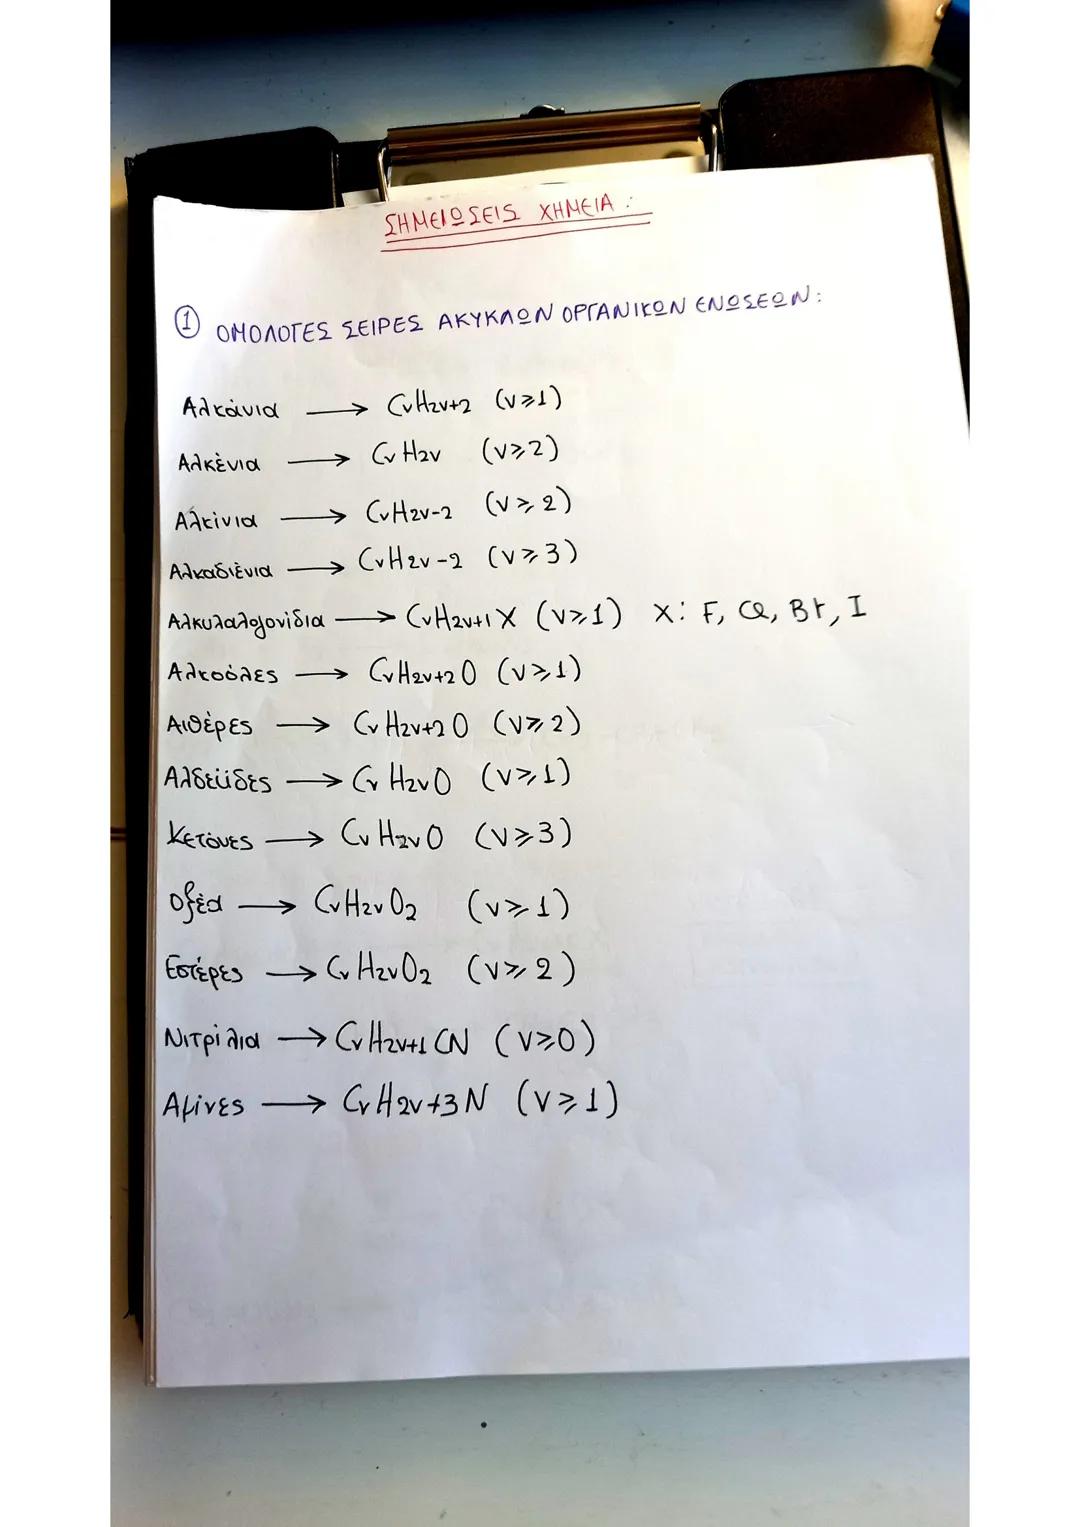 ΣΗΜΕΙΩΣΕΙΣ ΧΗΜΕΙΑ:
① ΟΜΟΛΟΓΕΣ ΣΕΙΡΕΣ ΑΚΥΚΛΩΝ ΟΡΓΑΝΙΚΩΝ ΕΝΩΣΕΩΝ:
Αλκάνια → CνH2ν+2 (ν≥1)
Αλκένια → CνH2ν (ν≥2)
Αλκίνια → CνH2ν-2 (ν≥2)
Αλκαδιένια → CνH2ν-2 (ν≥3)
Αλκυλαλογονίδια → CνH2ν+1X (ν≥1) X: F, Cl, Br, I
Αλκοόλες → CνH2ν+2O (ν≥1)
Αιθέρες → CνH2ν+2O (ν≥2)
Αλδεΰδες → CνH2νO (ν≥1)
Κετόνες → CνH2νO (ν≥3)
Οξέα → CνH2νO2 (ν≥1)
Εστέρες → CνH2νO2 (ν≥2)
Νιτρίλια → CνH2ν+1CN (ν≥0)
Αμίνες → CνH2ν+3N (ν≥1)